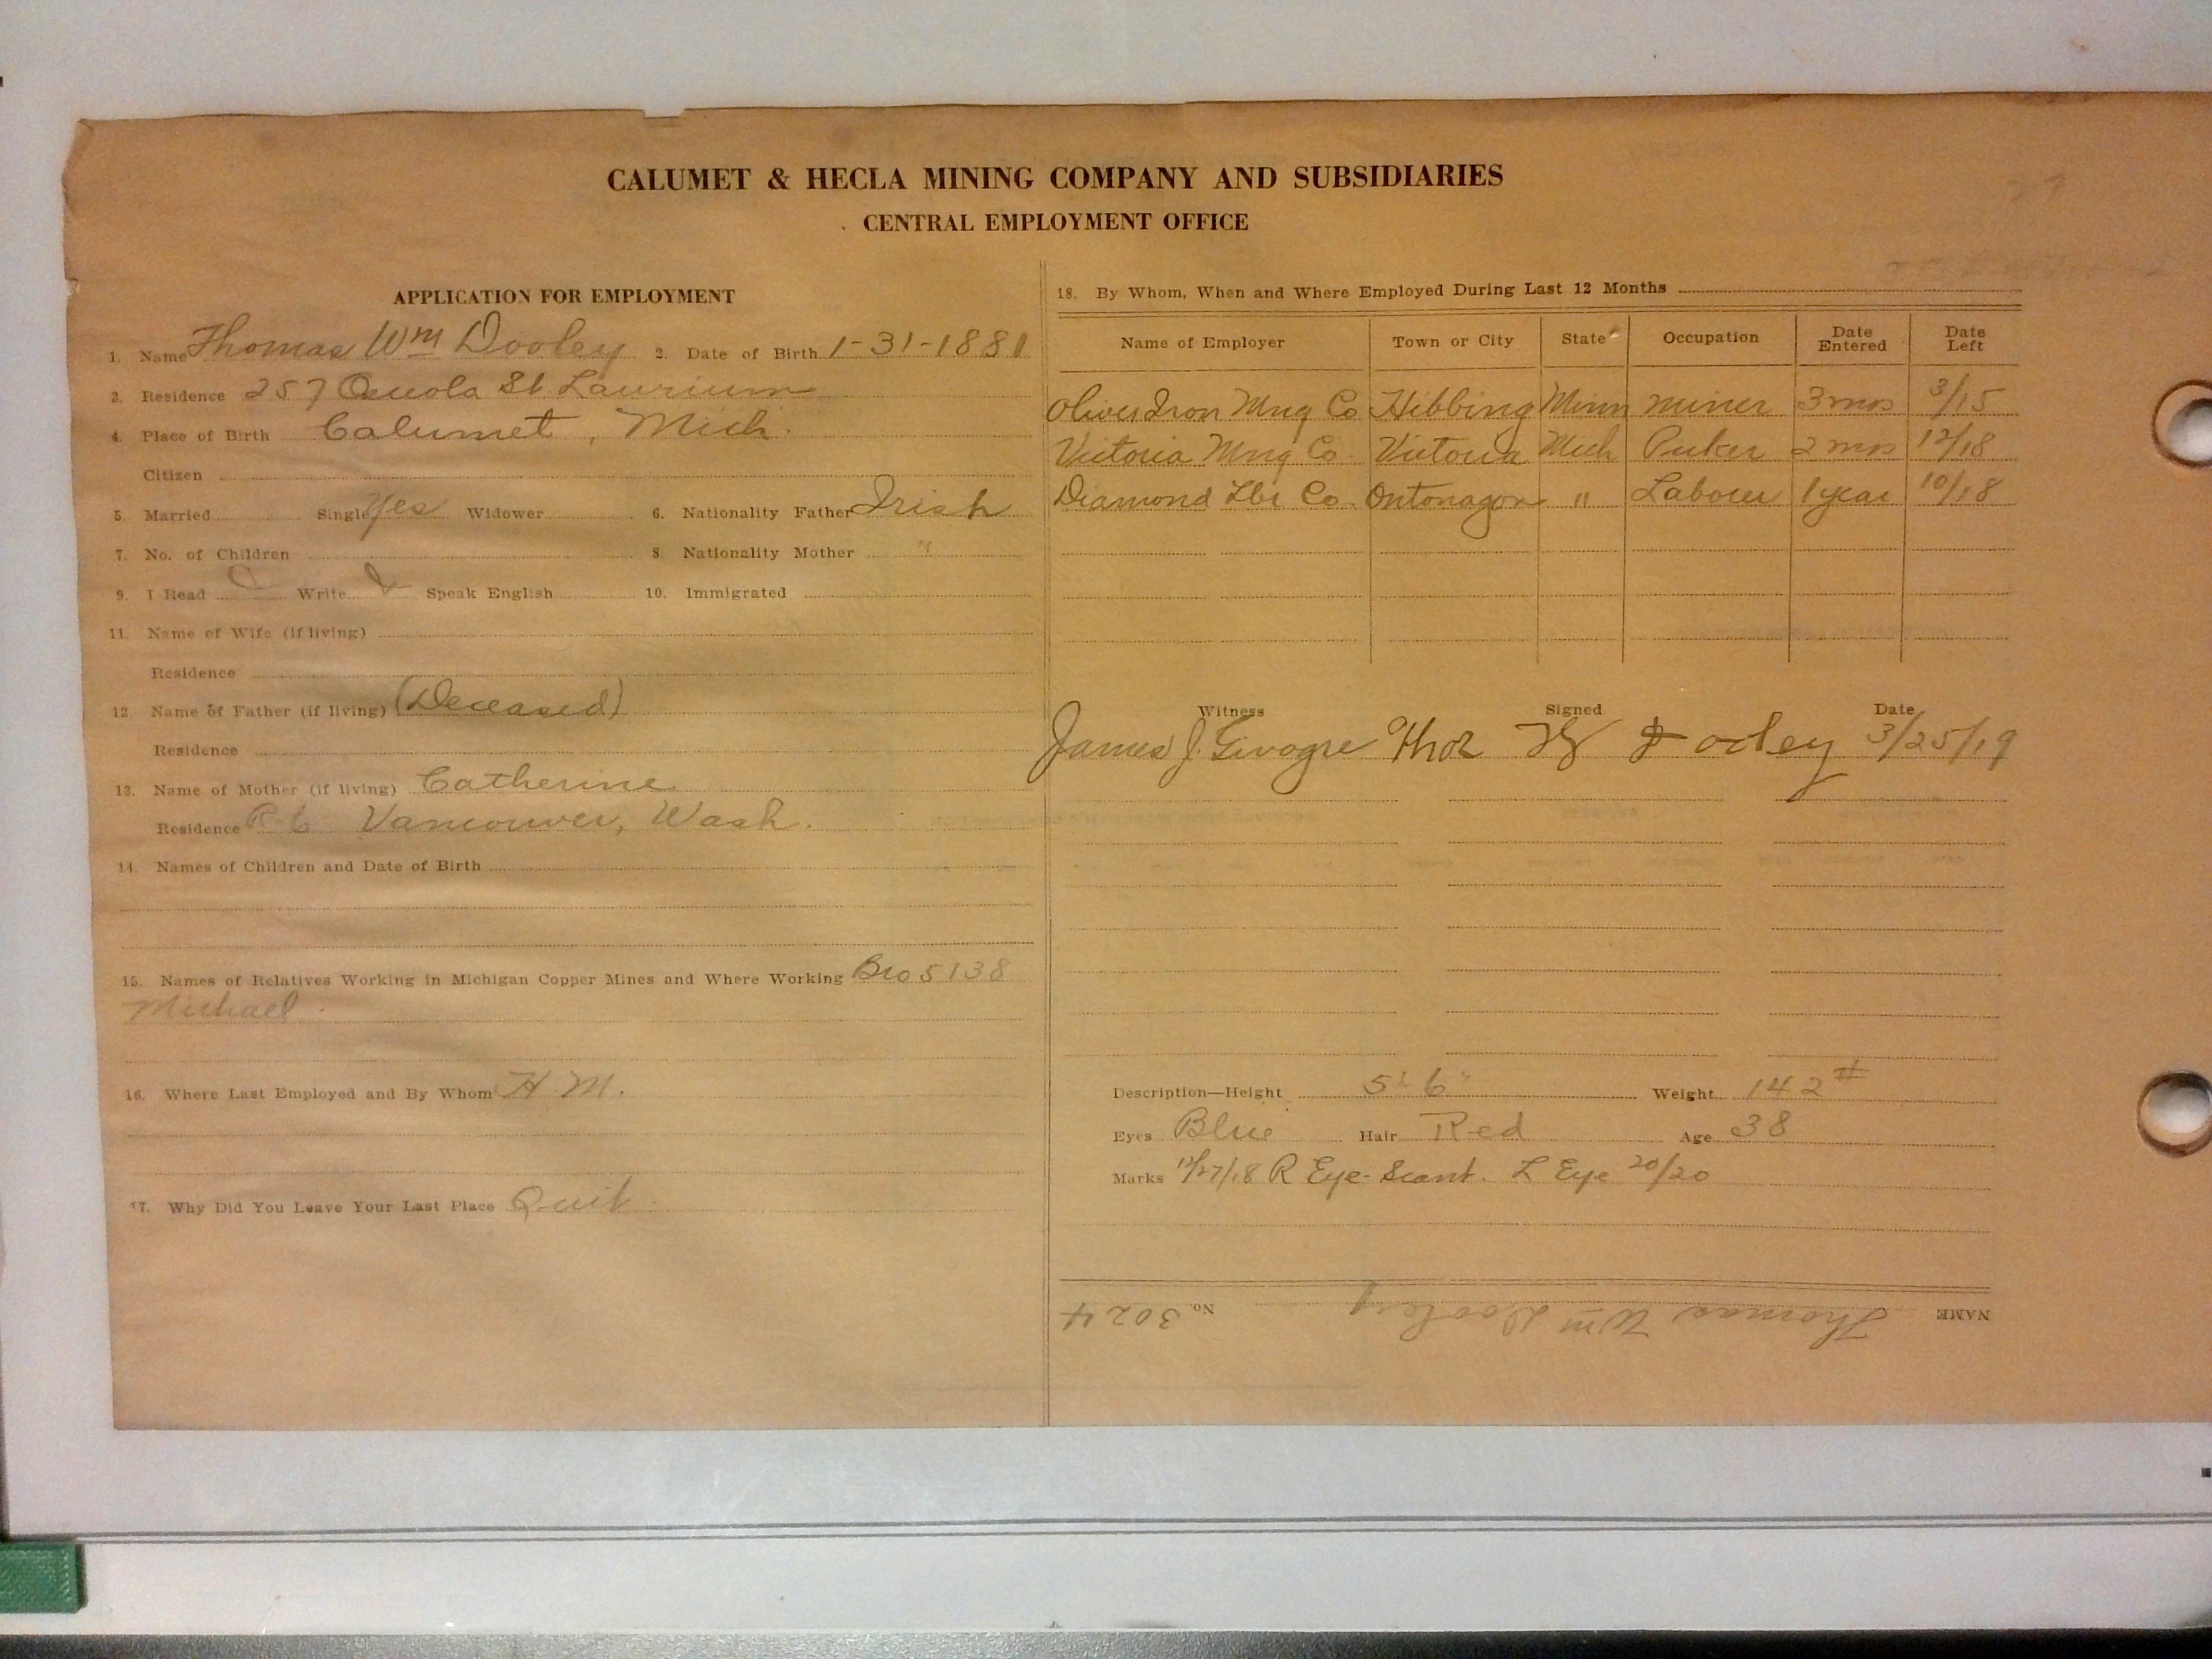 CALUMET & HECLA MINING COMPANY AND SUBSIDIARIES
CENTRAL EMPLOYMENT OFFICE
APPLICATION FOR EMPLOYMENT
1. Name Thomas Wm Dooley 2. Date of Birth 1-31-1881
3. Residence 257 Osceola St Laurium
4. Place of Birth Calumet, Mich.
Citizen
5. Married Single Yes Widower 6. Nationality Father Irish
7. No. of Children 8. Nationality Mother "
9. I Read Write Speak English 10. Immigrated
11. Name of Wife (if living)
Residence
12. Name of Father (if living) (Deceased)
Residence
13. Name of Mother (if living) Catherine
Residence Vancouver, Wash.
14. Names of Children and Date of Birth
15. Names of Relatives Working in Michigan Copper Mines and Where Working Bro 5138
Michael.
16. Where Last Employed and By Whom H M.
17. Why Did You Leave Your Last Place Quit
18. By Whom, When and Where Employed During Last 12 Months
Name of Employer Town or City State Occupation Date Entered Date Left
Oliver Iron Mng Co Hibbing Minn miner 3 mos 3/15
Victoria Mng Co. Victoria Mich 2 mos 12/18
Diamond Lbr Co. Ontonagon " Laborer 1 year 10/18
Witness Signed Date
James J. Thos W Dooley 3/25/19
Description—Height 5' 6" Weight 142#
Eyes Blue Hair Red Age 38
Marks 12/27/18 R Eye- Scant. L Eye 20/20
NAME Thomas Wm Dooley No. 3024